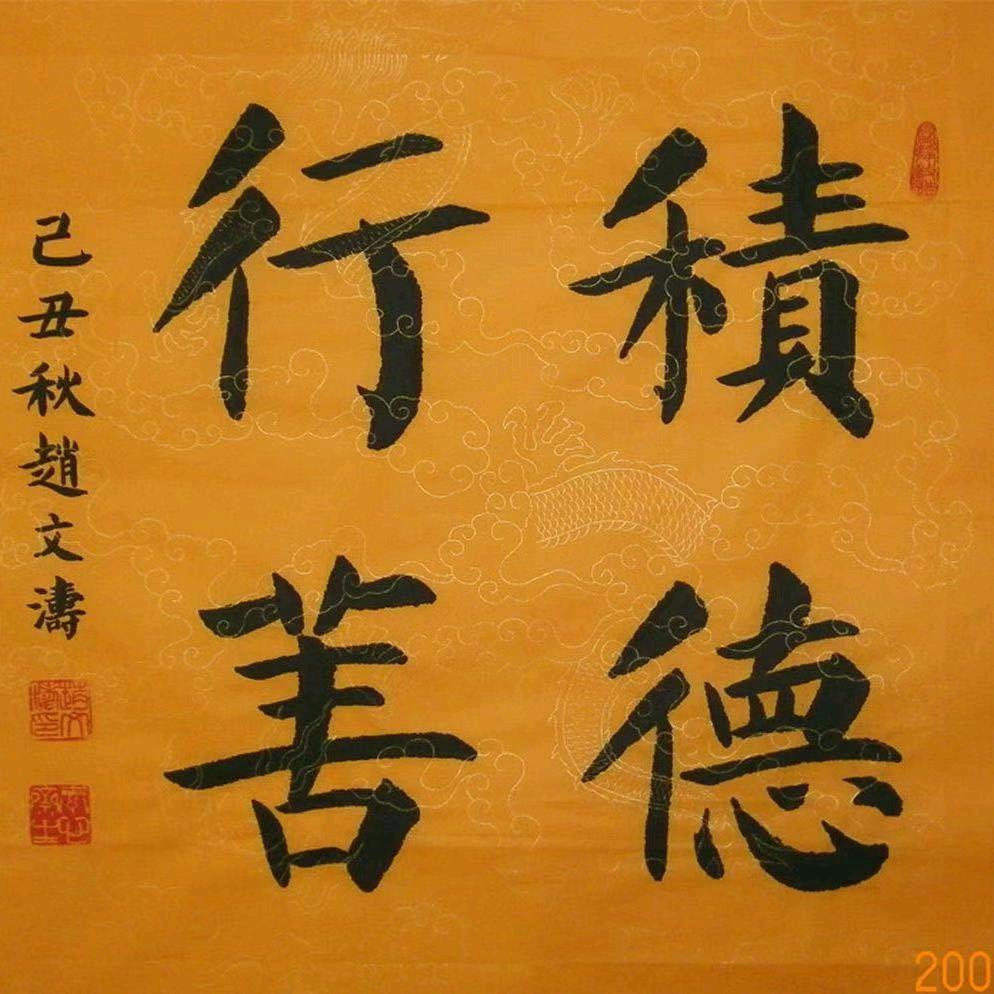 積德
行善
己丑秋趙文濤
200